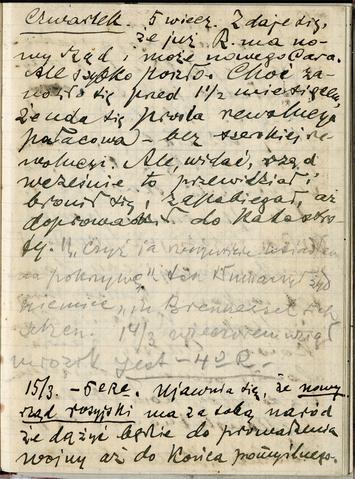 Czwartek. 5 wiecz. Zdaje się,
że już R. ma no-
wy rząd i może nowego Cara.
Ale szybko poszło. Choć za-
nosiło się przed 1½ miesiącem,
że uda się prosta rewolucja
pałacowa – bez szerokiej re-
wolucji. Ale, widać, rząd
wcześnie to przewidział i
bronił się, zabiegał, aż
doprowadził do katastro-
fy. "Czyż ja
na pokrywę" ten
niemiec, "in Brennessel sich
setzen. 14/3 wieczorem wciąż
mrozik jest – 4° R.
15/3. – 5 ppe. Ujawnia się, że nowy
rząd rosyjski ma za sobą naród
że dążyć będzie do prowadzenia
wojny aż do końca pomyślnego.